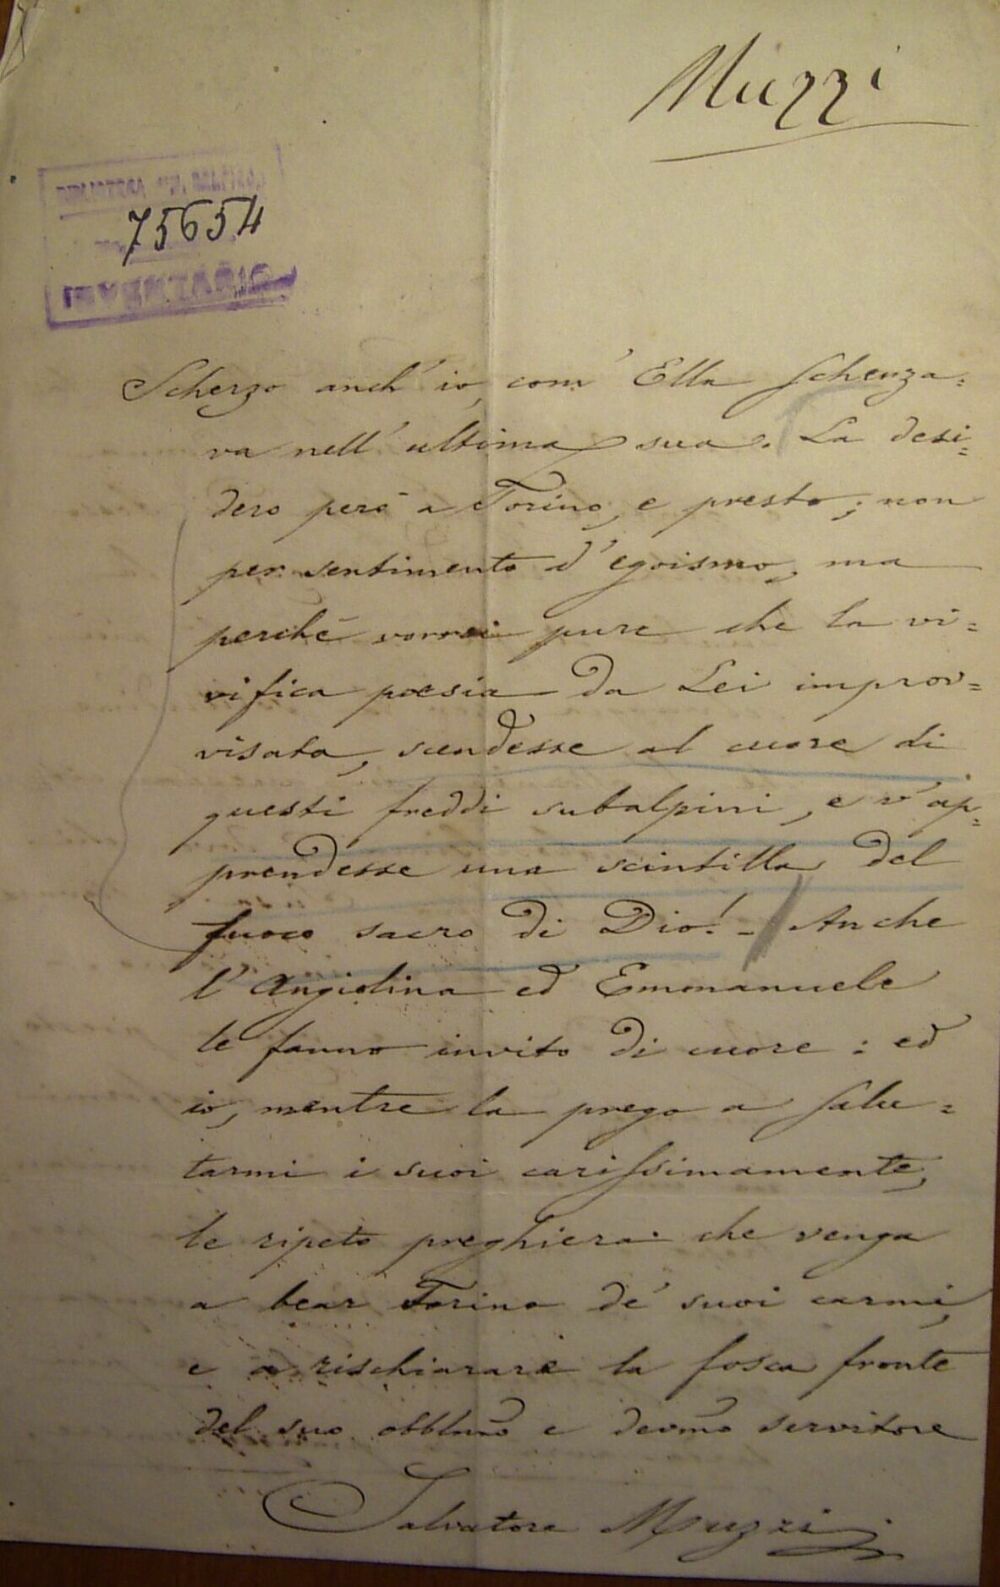 Muzzi
BIBLIOTECA
75654
INVENTARIO
Scherzo anch' io, com' Ella scherza=
va nell' ultima sua. La desi=
dero però a Torino, e presto; non
per sentimento d' egoismo, ma
perché vorrei pure che la vi=
vifica poesia da Lei improv=
visata, scendesse al cuore di
questi freddi subalpini, e v' ap=
prendesse una scintilla del
fuoco sacro di Dio! - Anche
l' Angiolina ed Emmanuele
le fanno invito di cuore: ed
io, mentre la prego a salu=
tarmi i suoi carissimamente,
le ripeto preghiera che venga
a bear Torino de' suoi carmi,
e a rischiarare la fosca fronte
del suo obblmo e devmo servitore
Salvatore Muzzi